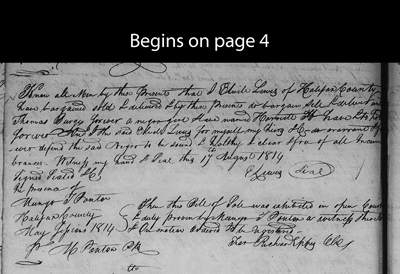 Begins on page 4
Know all Men by these Presents that I Exile Lewis of Halifax County
have bargained sold & delivered & by these Presents do bargain sell & deliver unto
Thomas Burges forever a negro girl Slave named Harriett To have & to
forever And I the said Exile Lewis for myself my heirs &c do warrant &
ever defend the said Negro to be sound & healthy & clear & free of all Incum
brances. Witness my hand & Seal this 17th August 1814
Signed Sealed &c
E Lewis Seal
In presence of
Mungo T Ponton
Halifax County
May Sessions 1814
Then this Bill of Sale was exhibited in open Court
& duly proven by Mungo T Ponton a witness thereto
& on motion ordered to be registered
M Ponton
Test Richard Eppes Clk